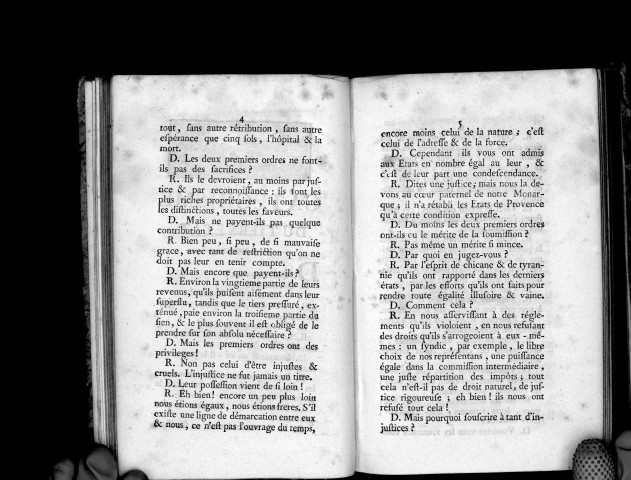 4
tout, sans autre rétribution, sans autre
espérance que cinq sols, l'hôpital & la
mort.
D. Les deux premiers ordres ne font-
ils pas des sacrifices ?
R. Ils le devroient, au moins par jus-
tice & par reconnoissance : ils sont les
plus riches propriétaires, ils ont toutes
les distinctions, toutes les faveurs.
D. Mais ne payent-ils pas quelque
contribution ?
R. Bien peu, si peu, de si mauvaise
grace, avec tant de restriction qu'on ne
doit pas leur en tenir compte.
D. Mais encore que payent-ils ?
R. Environ la vingtieme partie de leurs
revenus, qu'ils puisent aisément dans leur
superflu, tandis que le tiers pressuré, ex-
ténué, paie environ la troisieme partie du
sien, & le plus souvent il est obligé de le
prendre sur son absolu nécessaire ?
D. Mais les premiers ordres ont des
privileges !
R. Non pas celui d'être injustes &
cruels. L'injustice ne fut jamais un titre.
D. Leur possession vient de si loin !
R. Eh bien ! encore un peu plus loin
nous étions égaux, nous étions freres. S'il
existe une ligne de démarcation entre eux
& nous, ce n'est pas l'ouvrage du temps,
5
encore moins celui de la nature ; c'est
celui de l'adresse & de la force.
D. Cependant ils vous ont admis
aux Etats en nombre égal au leur, &
c'est de leur part une condescendance.
R. Dites une justice ; mais nous la de-
vons au cœur paternel de notre Monar-
que ; il n'a rétabli les Etats de Provence
qu'à cette condition expresse.
D. Du moins les deux premiers ordres
ont-ils eu le mérite de la soumission ?
R. Pas même un mérite si mince.
D. Par quoi en jugez-vous ?
R. Par l'esprit de chicane & de tyran-
nie qu'ils ont rapporté dans les derniers
états, par les efforts qu'ils ont faits pour
rendre toute égalité illusoire & vaine.
D. Comment cela ?
R. En nous asservissant à des régle-
ments qu'ils violoient, en nous refusant
des droits qu'ils s'arrogeoient à eux-mê-
mes : un syndic, par exemple, le libre
choix de nos représentans, une puissance
égale dans la commission intermédiaire,
une juste répartition des impôts ; tout
cela n'est-il pas de droit naturel, de jus-
tice rigoureuse ; eh bien ! ils nous ont
refusé tout cela !
D. Mais pourquoi souscrire à tant d'in-
justices ?